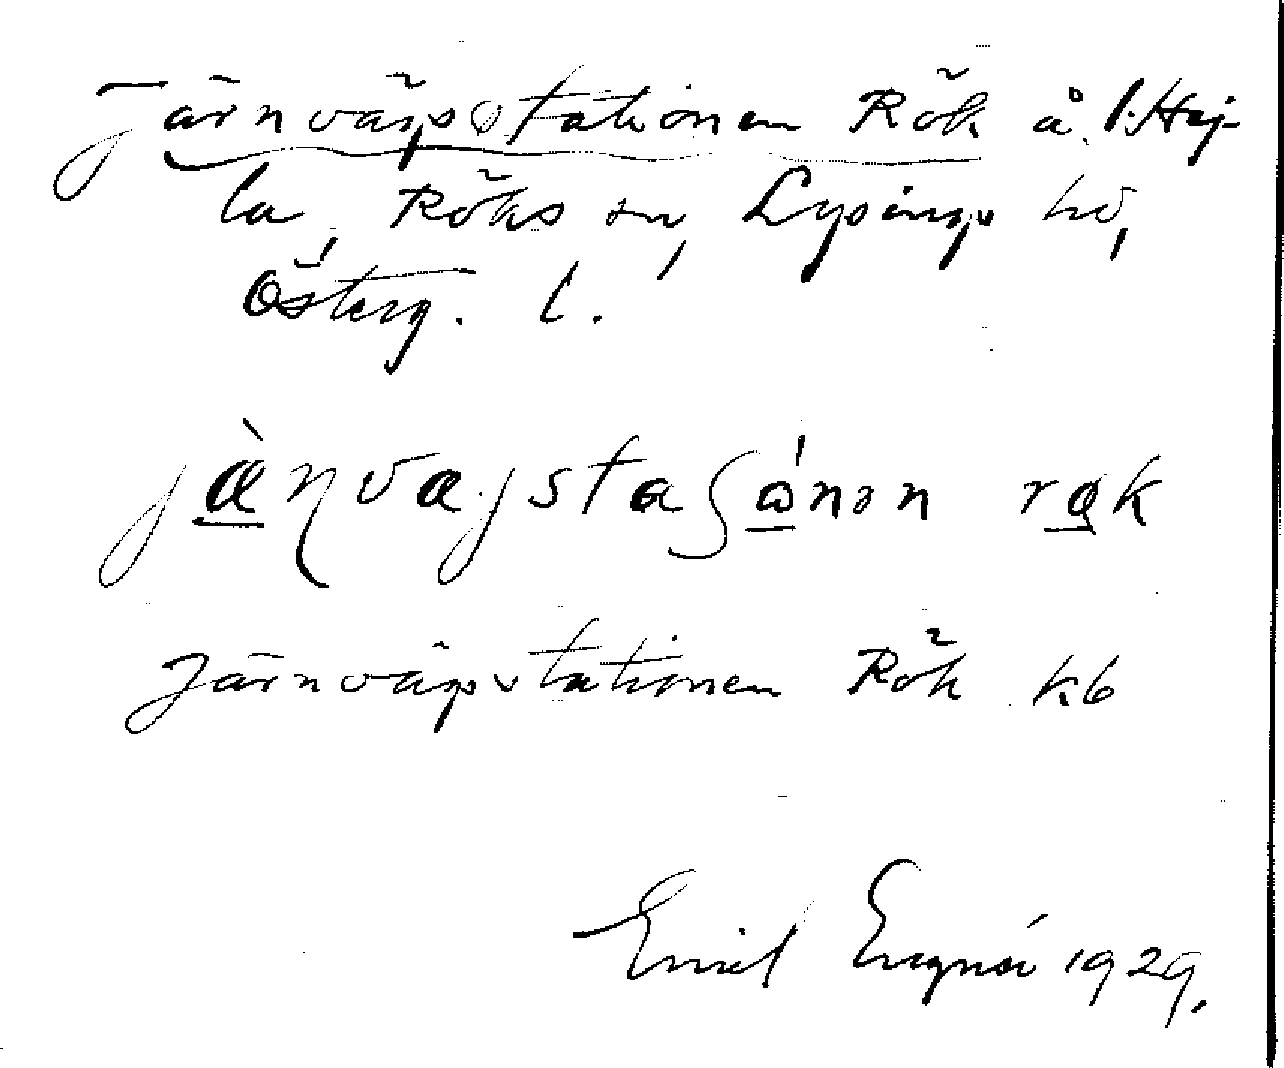 Järnvägsstationen Rök å l. Hej-
la, Röks sn, Lysings hd,
Österg. l.
jæ̀ɳvajstaʃónən røk
Järnvägsstationen Rök kb
Emil 1929.